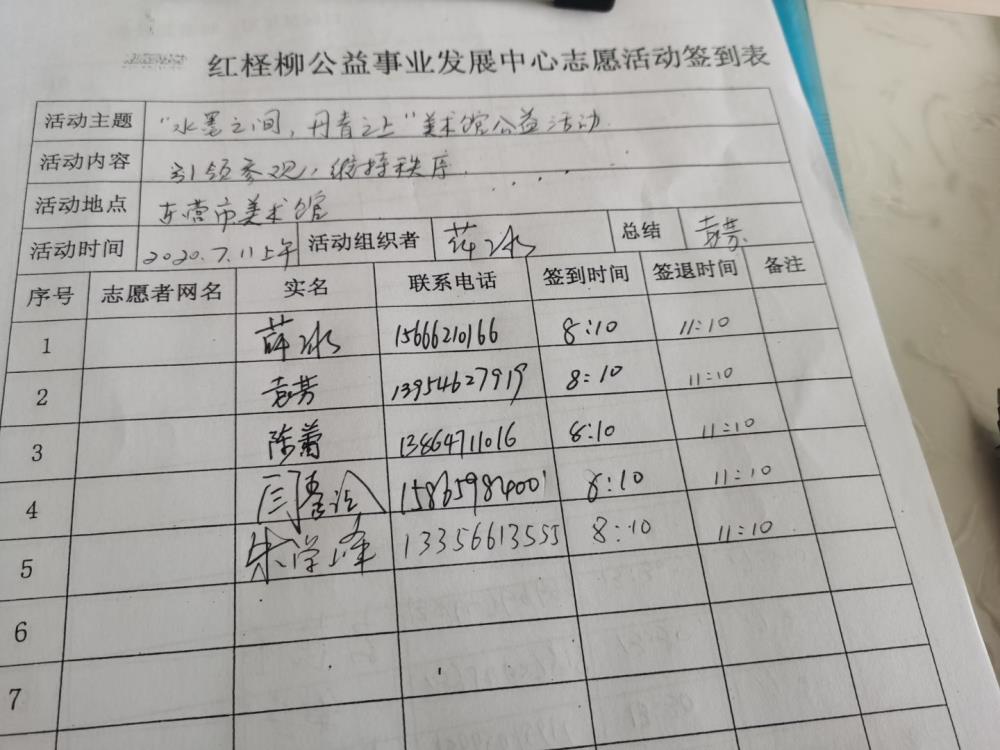 红柽柳公益事业发展中心志愿活动签到表
活动主题 "水墨之间,丹青之上"美术馆公益活动
活动内容 引领参观,维持秩序
活动地点 东营市美术馆
活动时间 2020.7.11上午 活动组织者 薛冰 总结 袁芳
序号 志愿者网名 实名 联系电话 签到时间 签退时间 备注
1 薛冰 15666210166 8:10 11:10
2 袁芳 13954627919 8:10 11:10
3 陈蕾 13864711016 8:10 11:10
4 8:10 11:10
5 朱学峰 13356613555 8:10 11:10
6
7